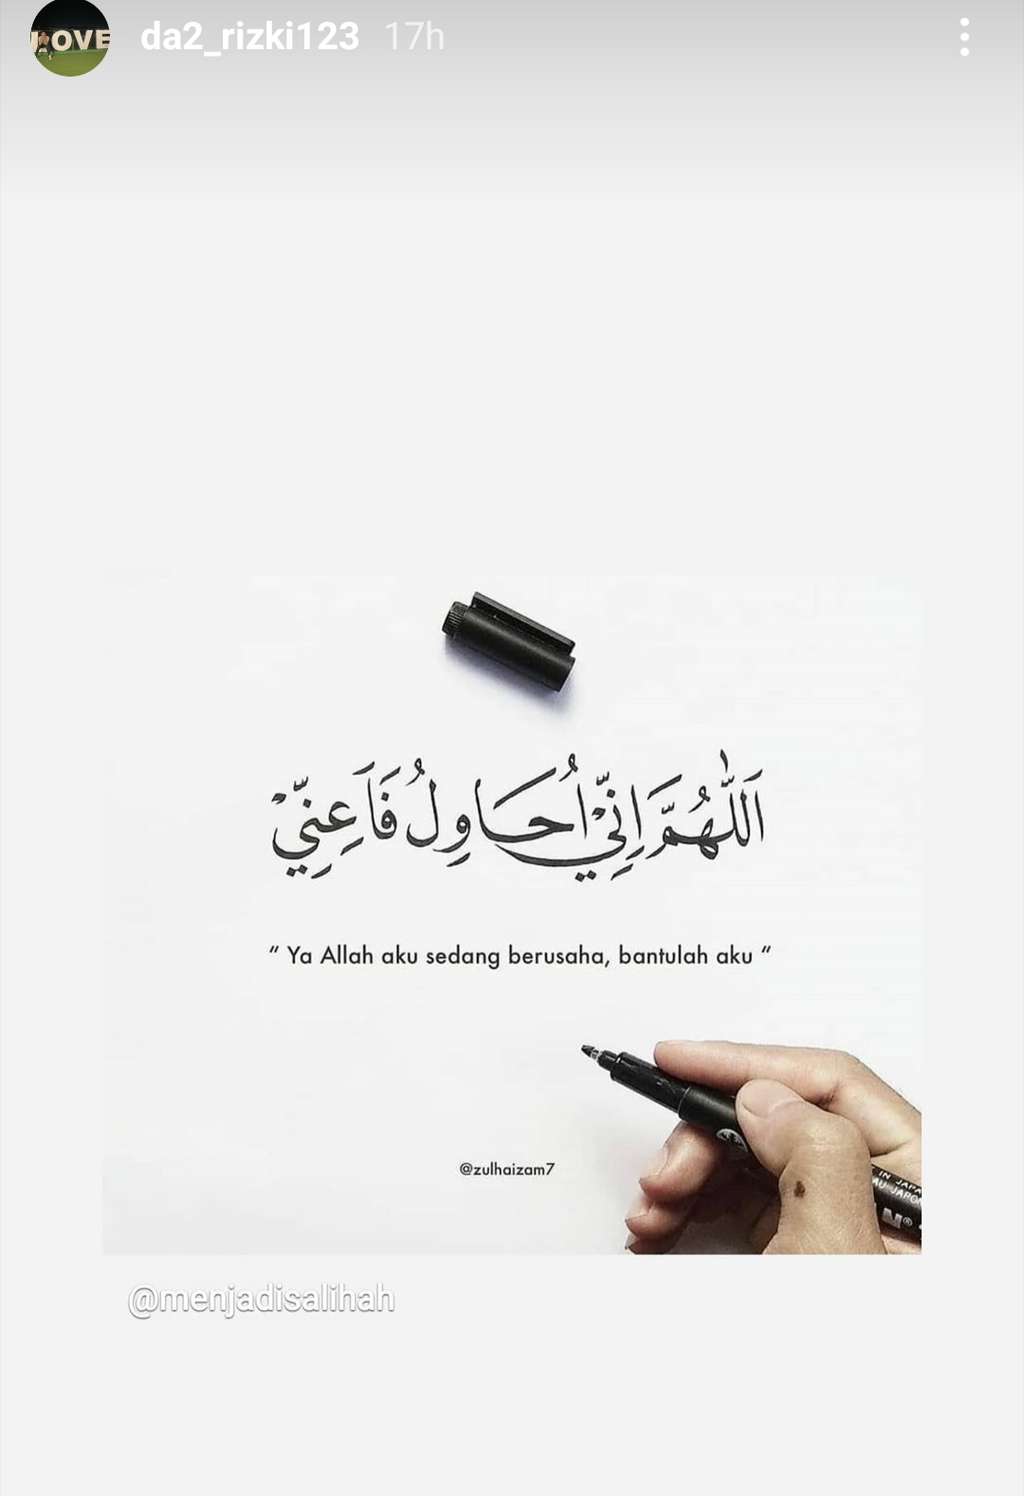 LOVE
da2_rizki123 17h
اَللّٰهُمَّ اِنِّيْ اُحَاوِلُ فَاَعِنِّيْ
“ Ya Allah aku sedang berusaha, bantulah aku “
IN JAPA
AU JAPO
N®
@zulhaizam7
@menjadisalihah